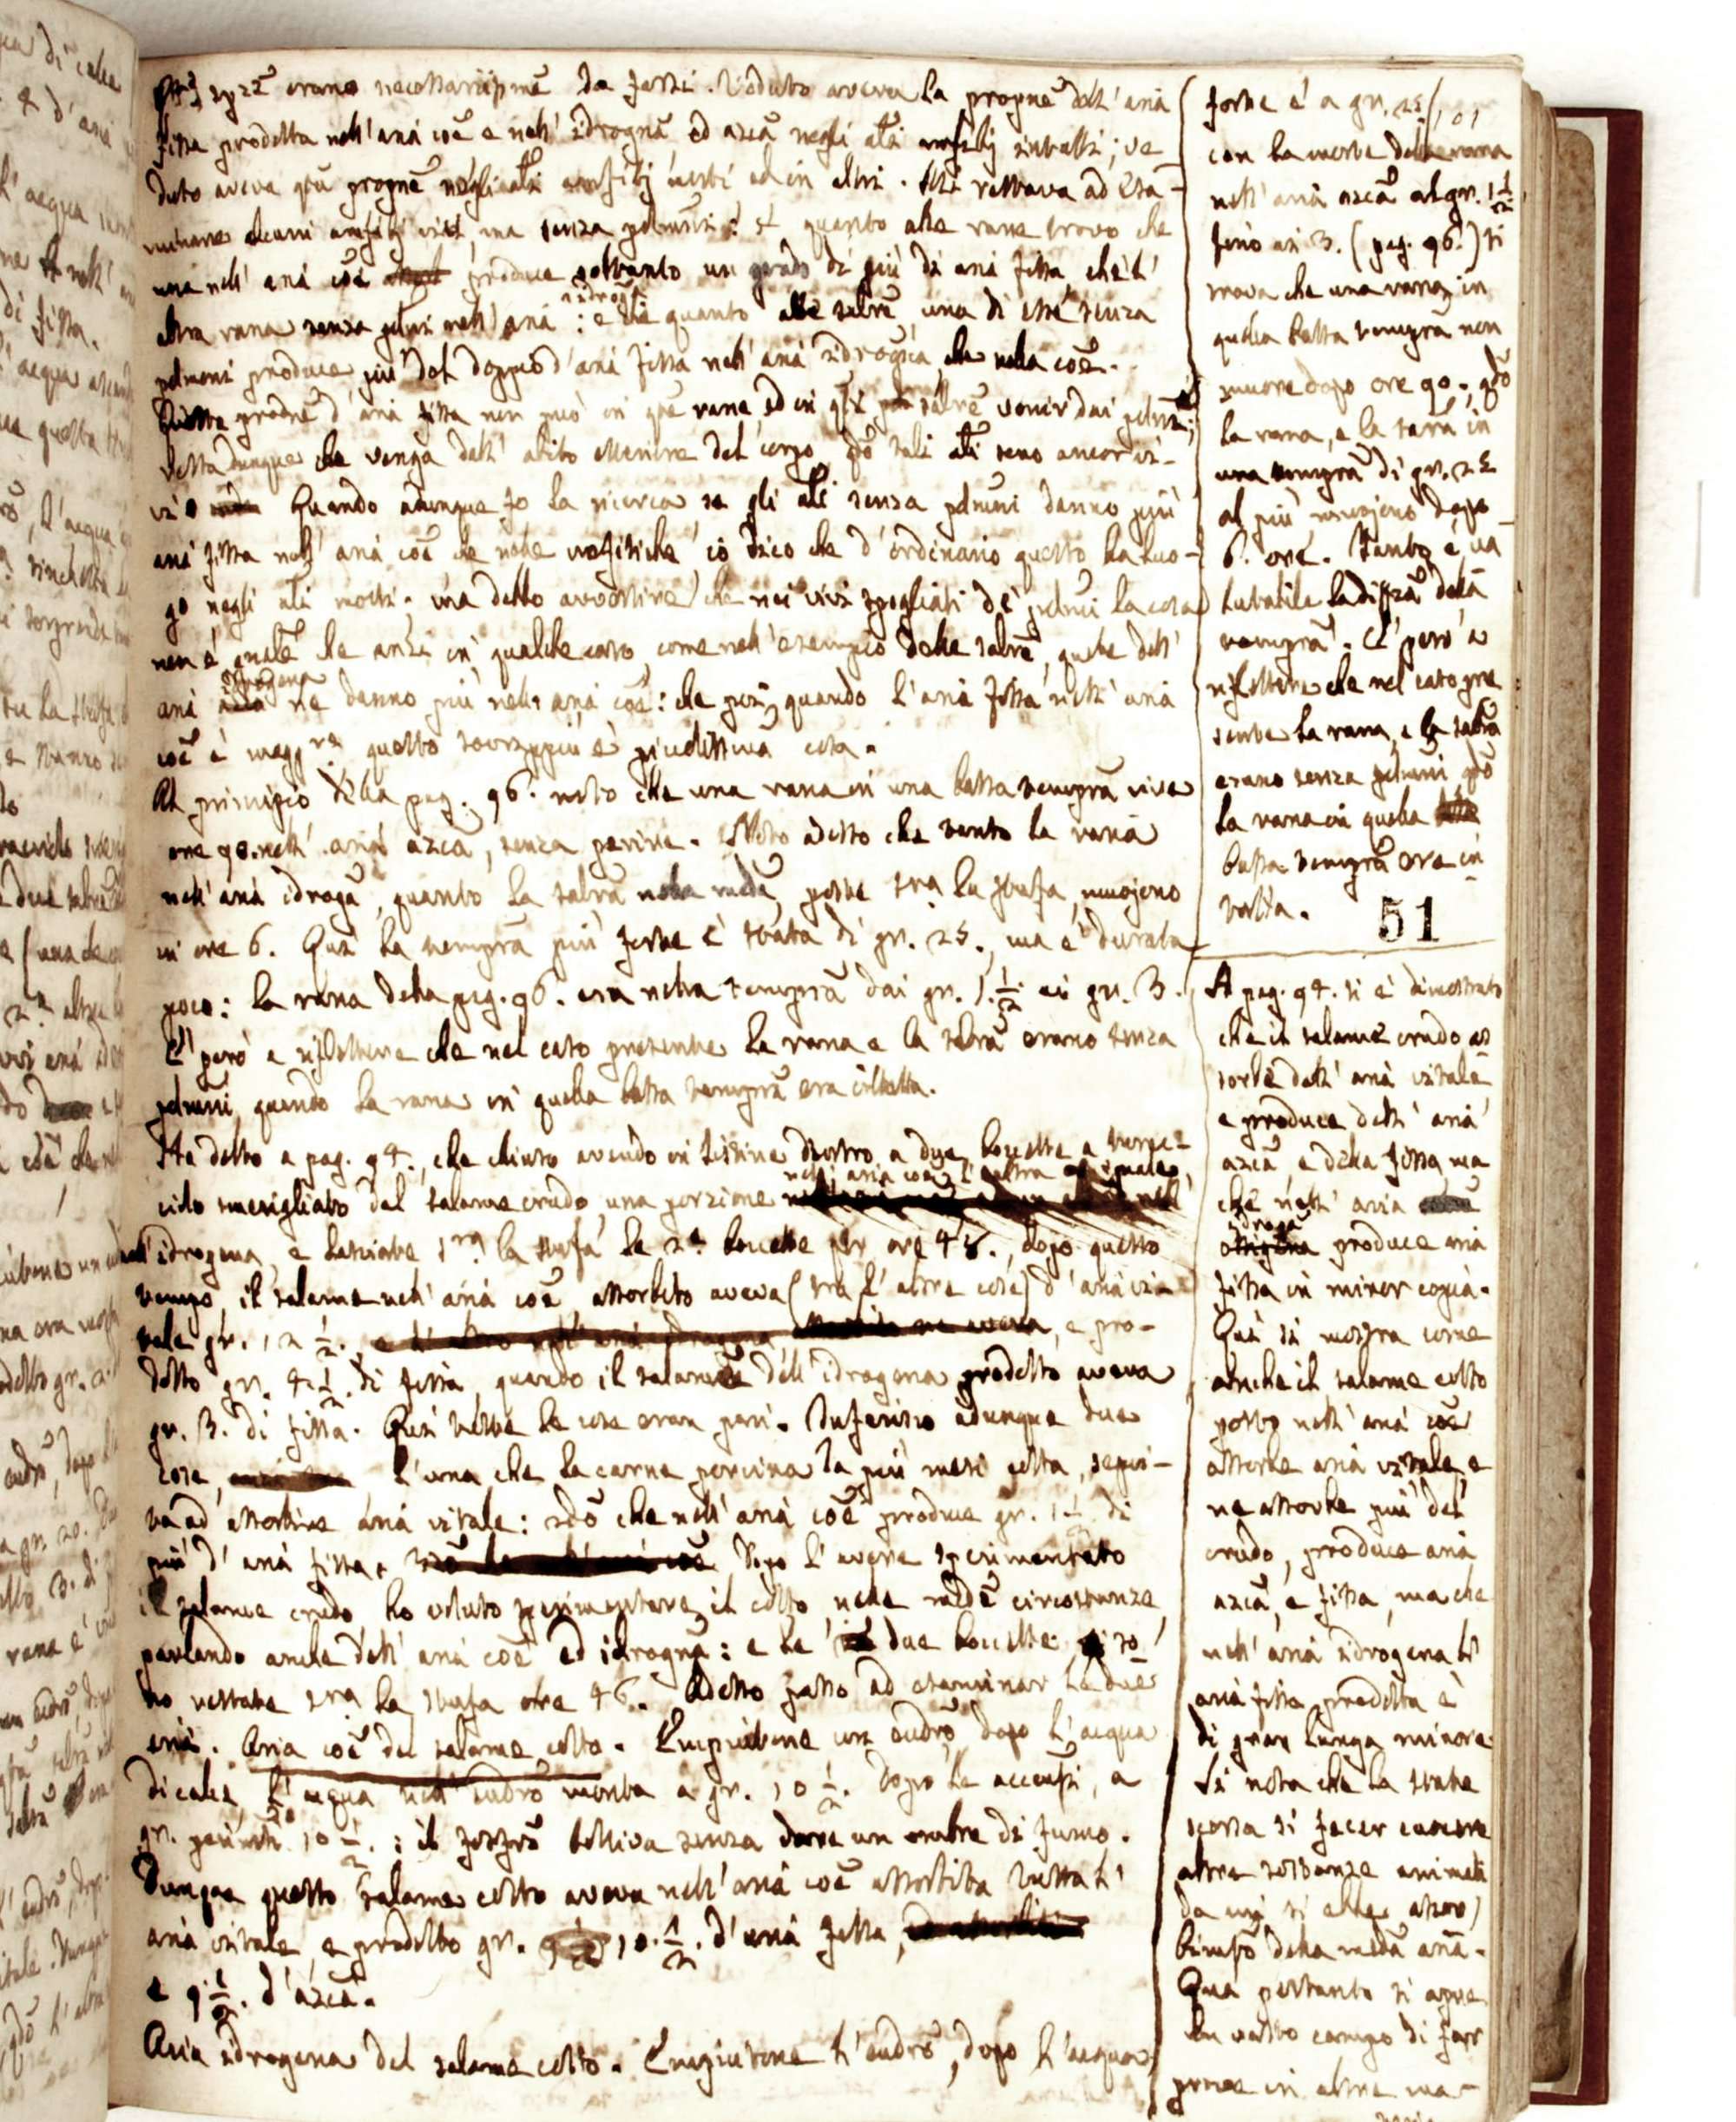 erano necessariissime da farsi. Veduto aveva la propne dell'aria
fissa prodotta nell'aria coe e nell'idrogna ed azca negli alti anfibj intatti; ve-
duto aveva qta propne negli alti anfibj morti ed in altri. restava ad esa-
minare alcuni anfibj vivi, ma senza polmoni: e quanto alle rane trovo che
una nell'aria coe produce soltanto un grado di più di aria fissa che l'
altra rana senza polmi nell'aria idrogna: e che quanto alle salre, una di esse senza
polmoni produce più del doppio d'aria fissa nell'aria idrognca che nella coe.
Questa prodne d'aria fissa non può in qte rane ed in qte salre venir dai polmni;
resta dunque che venga dall'abito esteriore del corpo, qdo tali ali sono ancor vi-
vi. Quando adunque fo la ricerca se gli ali senza polmni danno più
aria fissa nell'aria coe che nelle mofitiche, io dico che d'ordinario questo ha luo-
go negli ali morti. ma debbo avvertire che nei vivi spogliati de' polmni la cosa
non è eguale che anzi in qualche caso, come nell'esempio delle salre, quelle dell'
aria idrogena ne danno più nell'aria coe: che perz quando l'aria fissa nell'aria
coe è maggre questo sovrappiù è picciolissima cosa.
Al principio della pag. 96. noto che una rana in una bassa tempra vive
ore 90. nell'aria azca, senza perire. Noto adesso che tanto la rana
nell'aria idroga, quanto la salra nella mede, poste tra la stufa, muojono
in ore 6. Quì la tempra più forte è stata di gr. 25., ma è durata
poco: la rana della pag. 96. era nella tempra dai gr. 1. 1/2 ai gr. 3.
E' però a riflettere che nel caso presente la rana e la salra erano senza
polmni, quando la rana in quella bassa tempra era intatta.
Ho detto a pag. 94., che chiuso avendo in Lissine dentro a due boccette a turac-
nell'aria coe, l'altra
ciolo smerigliato del salame crudo, una porzione
nell'idrogena, e lasciate tra la stufa le 2e boccette per ore 48., dopo questo
tempo, il salame nell'aria coe assorbito aveva (tra l'altre cose) d'aria vi-
tale gr. 12 1/2., e pro-
dotto gr. 4 1/2. di fissa, quando il salame dell'idrogena prodotto aveva
gr. 3. di fissa. Quì tutte le cose eran pari. Inferisco adunque due
cose, l'una che la carne porcina da più mesi cotta, segui-
va ad assorbire aria vitale: 2do che nell'aria coe produce gr. 1 1/2 di
più d'aria fissa. Dopo l'avere sperimentato
il salame crudo ho voluto sperimentare il cotto nelle mede circostanze
parlando anche dell'aria coe ed idrogna: e le due boccette so-
no restate tra la stufa ore 46. Adesso passo ad esaminar le due
arie. Aria coe del salame cotto. Empiutone un eudro, dopo l'acqua
di calce, l'acqua nell'eudro monta a gr. 10 1/2. Dopo le accensi, a
gr. parimti 10 1/2.: il fosfro bolliva senza dare un'ombra di fumo.
Dunque questo salame cotto aveva nell'aria coe assorbita tutta l'
aria vitale, e prodotto gr. 10. 1/2. d'aria fissa,
e 9 1/2. d'azca.
Aria idrogena del salame cotto. Empiutone l'eudro, dopo l'acqua
forte è a gr. 25 101
con la morte della rana
nell'aria azca al gr. 1 1/2
fino ai 3. (pag. 96.) si
trova che una rana in
quella bassa tempra non
muore dopo ore 90., qdo
la rana, e la salra in
una tempra di gr. 25
al più muojono dopo
6. ore. Tanto è va
lutabile la diffza della
tempra. E' però a
riflettere che nel caso pre
sente la rana, e la salra
erano senza polmni qdo
la rana in quella
bassa tempra era in
tatta.
51
A pag. 94. si è dimostrato
che il salame crudo as
sorbe dell'aria vitale
e produce dell'aria
azca e della fissa, ma
che nell'aria
idroga
produce aria
fissa in minor copia.
Quì si mostra come
anche il salame cotto
posto nell'aria coe
assorbe aria vitale, e
ne assorbe più del
crudo, produce aria
azca, e fissa, ma che
nell'aria idrogena l'
aria fissa prodotta è
di gran lunga minore
Si nota che la state
scorsa si fecer cuocere
altre sostanze animali
da cui si ebbe assor
bimto della meda aria.
Qua pertanto si apre
un vasto campo di far
prove in altre ma-